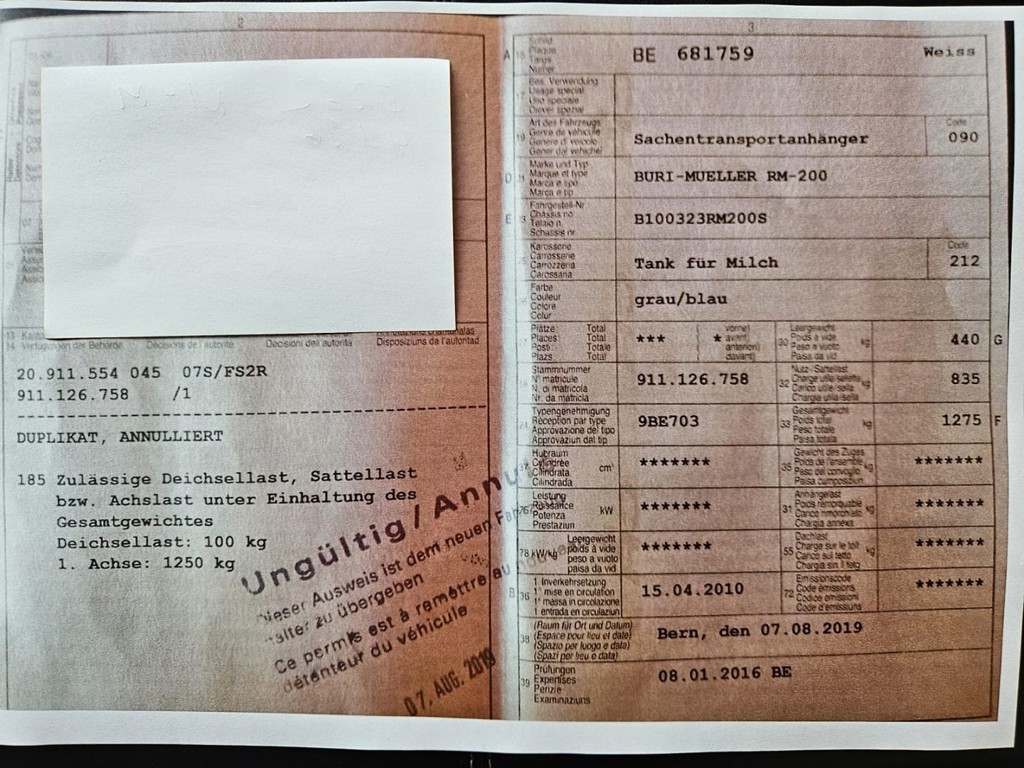 2
13 Kantonale
14 Verfügungen der Behörde Décisions de l'autorité Decisioni dell'autorità Disposiziuns da l'autoritad
20.911.554 045 07S/FS2R
911.126.758 /1
DUPLIKAT, ANNULLIERT
185 Zulässige Deichsellast, Sattellast
bzw. Achslast unter Einhaltung des
Gesamtgewichtes
Deichsellast: 100 kg
1. Achse: 1250 kg
Ungültig / Annu
Dieser Ausweis ist dem neuen
halter zu übergeben
Ce permis est à remettre au nouveau
détenteur du véhicule
07. AUG. 2019
3
A 15 Schild
Plaque
Targa
Numer
BE 681759 Weiss
17 Bes. Verwendung
Usage spécial
Uso speciale
Diever spezial
19 Art des Fahrzeugs
Genre de véhicule
Genere di veicolo
Gener dal vehichel
Sachentransportanhänger
Code
090
D Marke und Typ
Marque et type
Marca e tipo
Marca e tip
BURI-MUELLER RM-200
E Fahrgestell-Nr.
Châssis no
Telaio n.
Schassis nr.
B100323RM200S
Karosserie
Carrosserie
Carrozzeria
Carossaria
Tank für Milch
Code
212
Farbe
Couleur
Colore
Colur
grau/blau
Plätze Total
Places: Total
Posti: Totale
Plazs: Total
*** ( vorne)
* avant)
anteriori)
davant)
30 Leergewicht
Poids à vide
Peso a vuoto
Paisa da vid
kg
440 G
18 Stammnummer
N° matricule
N. di matricola
Nr. da matricla
911.126.758
32 Nutz-/Sattellast
Charge utile/sellette
Carico utile/sella
Chargia utila/sella
kg
835
24 Typengenehmigung
Réception par type
Approvazione del tipo
Approvaziun dal tip
9BE703
33 Gesamtgewicht
Poids total
Peso totale
Paisa totala
kg
1275 F
37 Hubraum
Cylindrée
Cilindrata
Cilindrada
cm³
*******
35 Gewicht des Zuges
Poids de l'ensemble
Peso del convoglio
Paisa cumposiziun
kg
*******
76 Leistung
Puissance
Potenza
Prestaziun
kW
*******
31 Anhängelast
Poids remorquable
Carico rimorchiato
Chargia annexa
kg
*******
78 kW/kg Leergewicht
poids à vide
peso a vuoto
paisa da vid
*******
55 Dachlast
Charge sur le toit
Carico sul tetto
Chargia sin il tetg
kg
*******
B 36 1. Inverkehrsetzung
1re mise en circulation
1a messa in circolazione
1. entrada en circulaziun
15.04.2010
72 Emissionscode
Code émissions
Codice emissioni
Code d'emissiuns
*******
38 (Raum für Ort und Datum)
(Espace pour lieu et date)
(Spazio per luogo e data)
(Spazi per lieu e data)
Bern, den 07.08.2019
39 Prüfungen
Expertises
Perizie
Examinaziuns
08.01.2016 BE